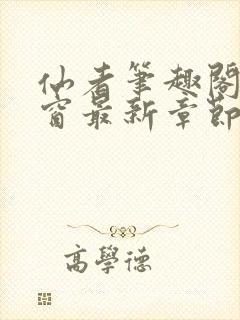 仙者筆趣閣
窗最新章節
高學德